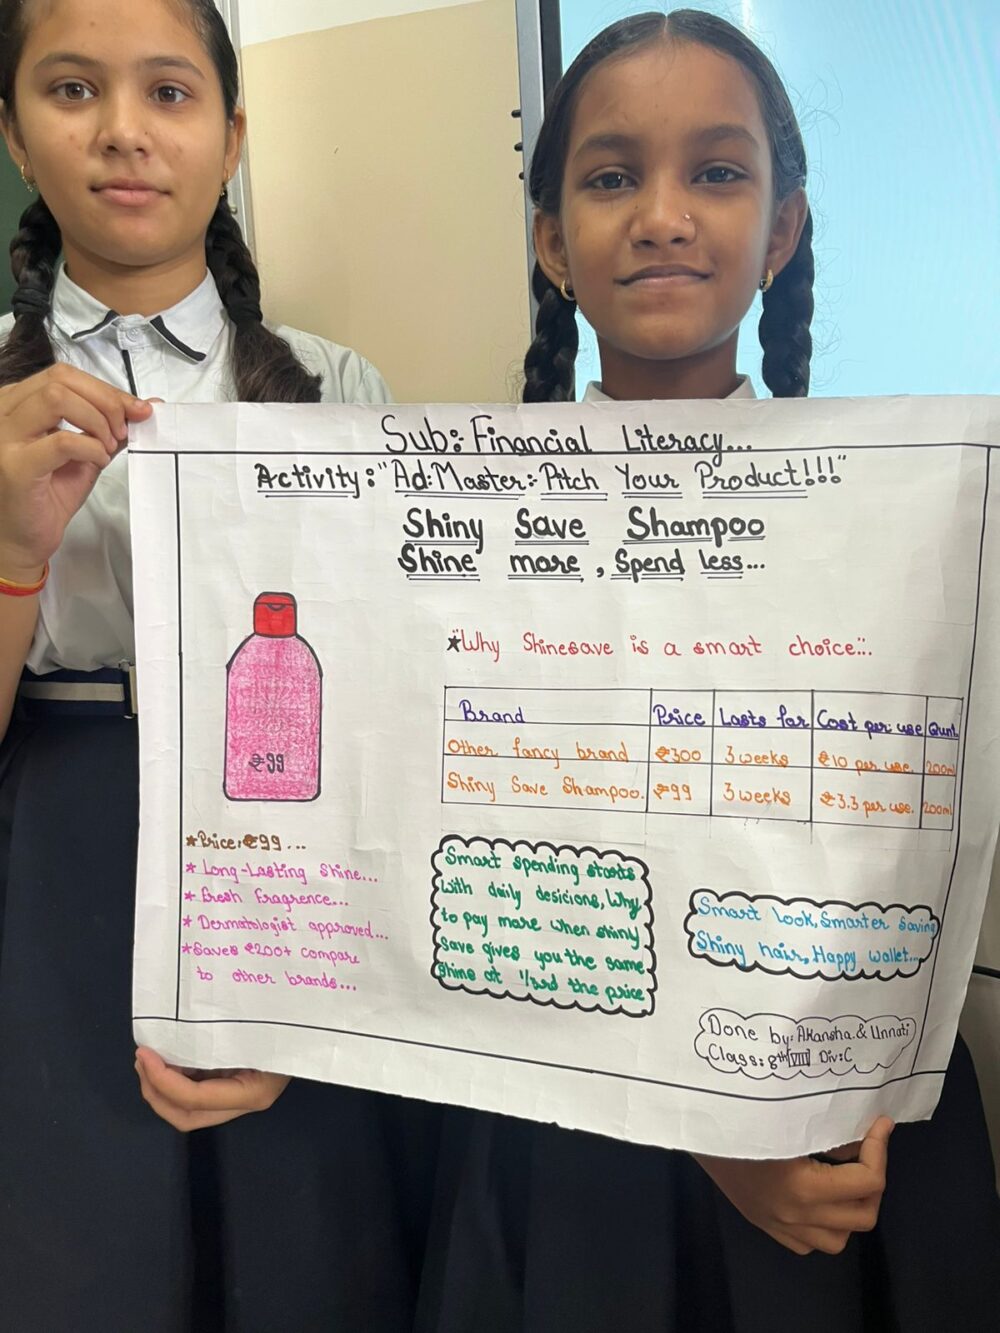 Sub: Financial Literacy...
Activity: "Ad:Master: Pitch Your Product!!!"
Shiny Save Shampoo
Shine more, Spend less...
₹99
*Price:₹99...
* Long-Lasting Shine...
* Fresh Fragrence...
* Dermatologist approved...
*Saves ₹200+ compare
to other brands...
*Why Shinesave is a smart choice...
Brand Price Lasts for Cost per use Qunt.
Other fancy brand ₹300 3 weeks ₹10 per use. 200ml
Shiny Save Shampoo. ₹99 3 weeks ₹3.3 per use. 200ml
Smart spending starts
with daily desicions, Why
to pay more when shiny
save gives you the same
shine at 1/3rd the price
Smart look, Smarter Saving
Shiny hair, Happy wallet...
Done by: Akansha & Unnati
Class: 8th [VIII] Div: C